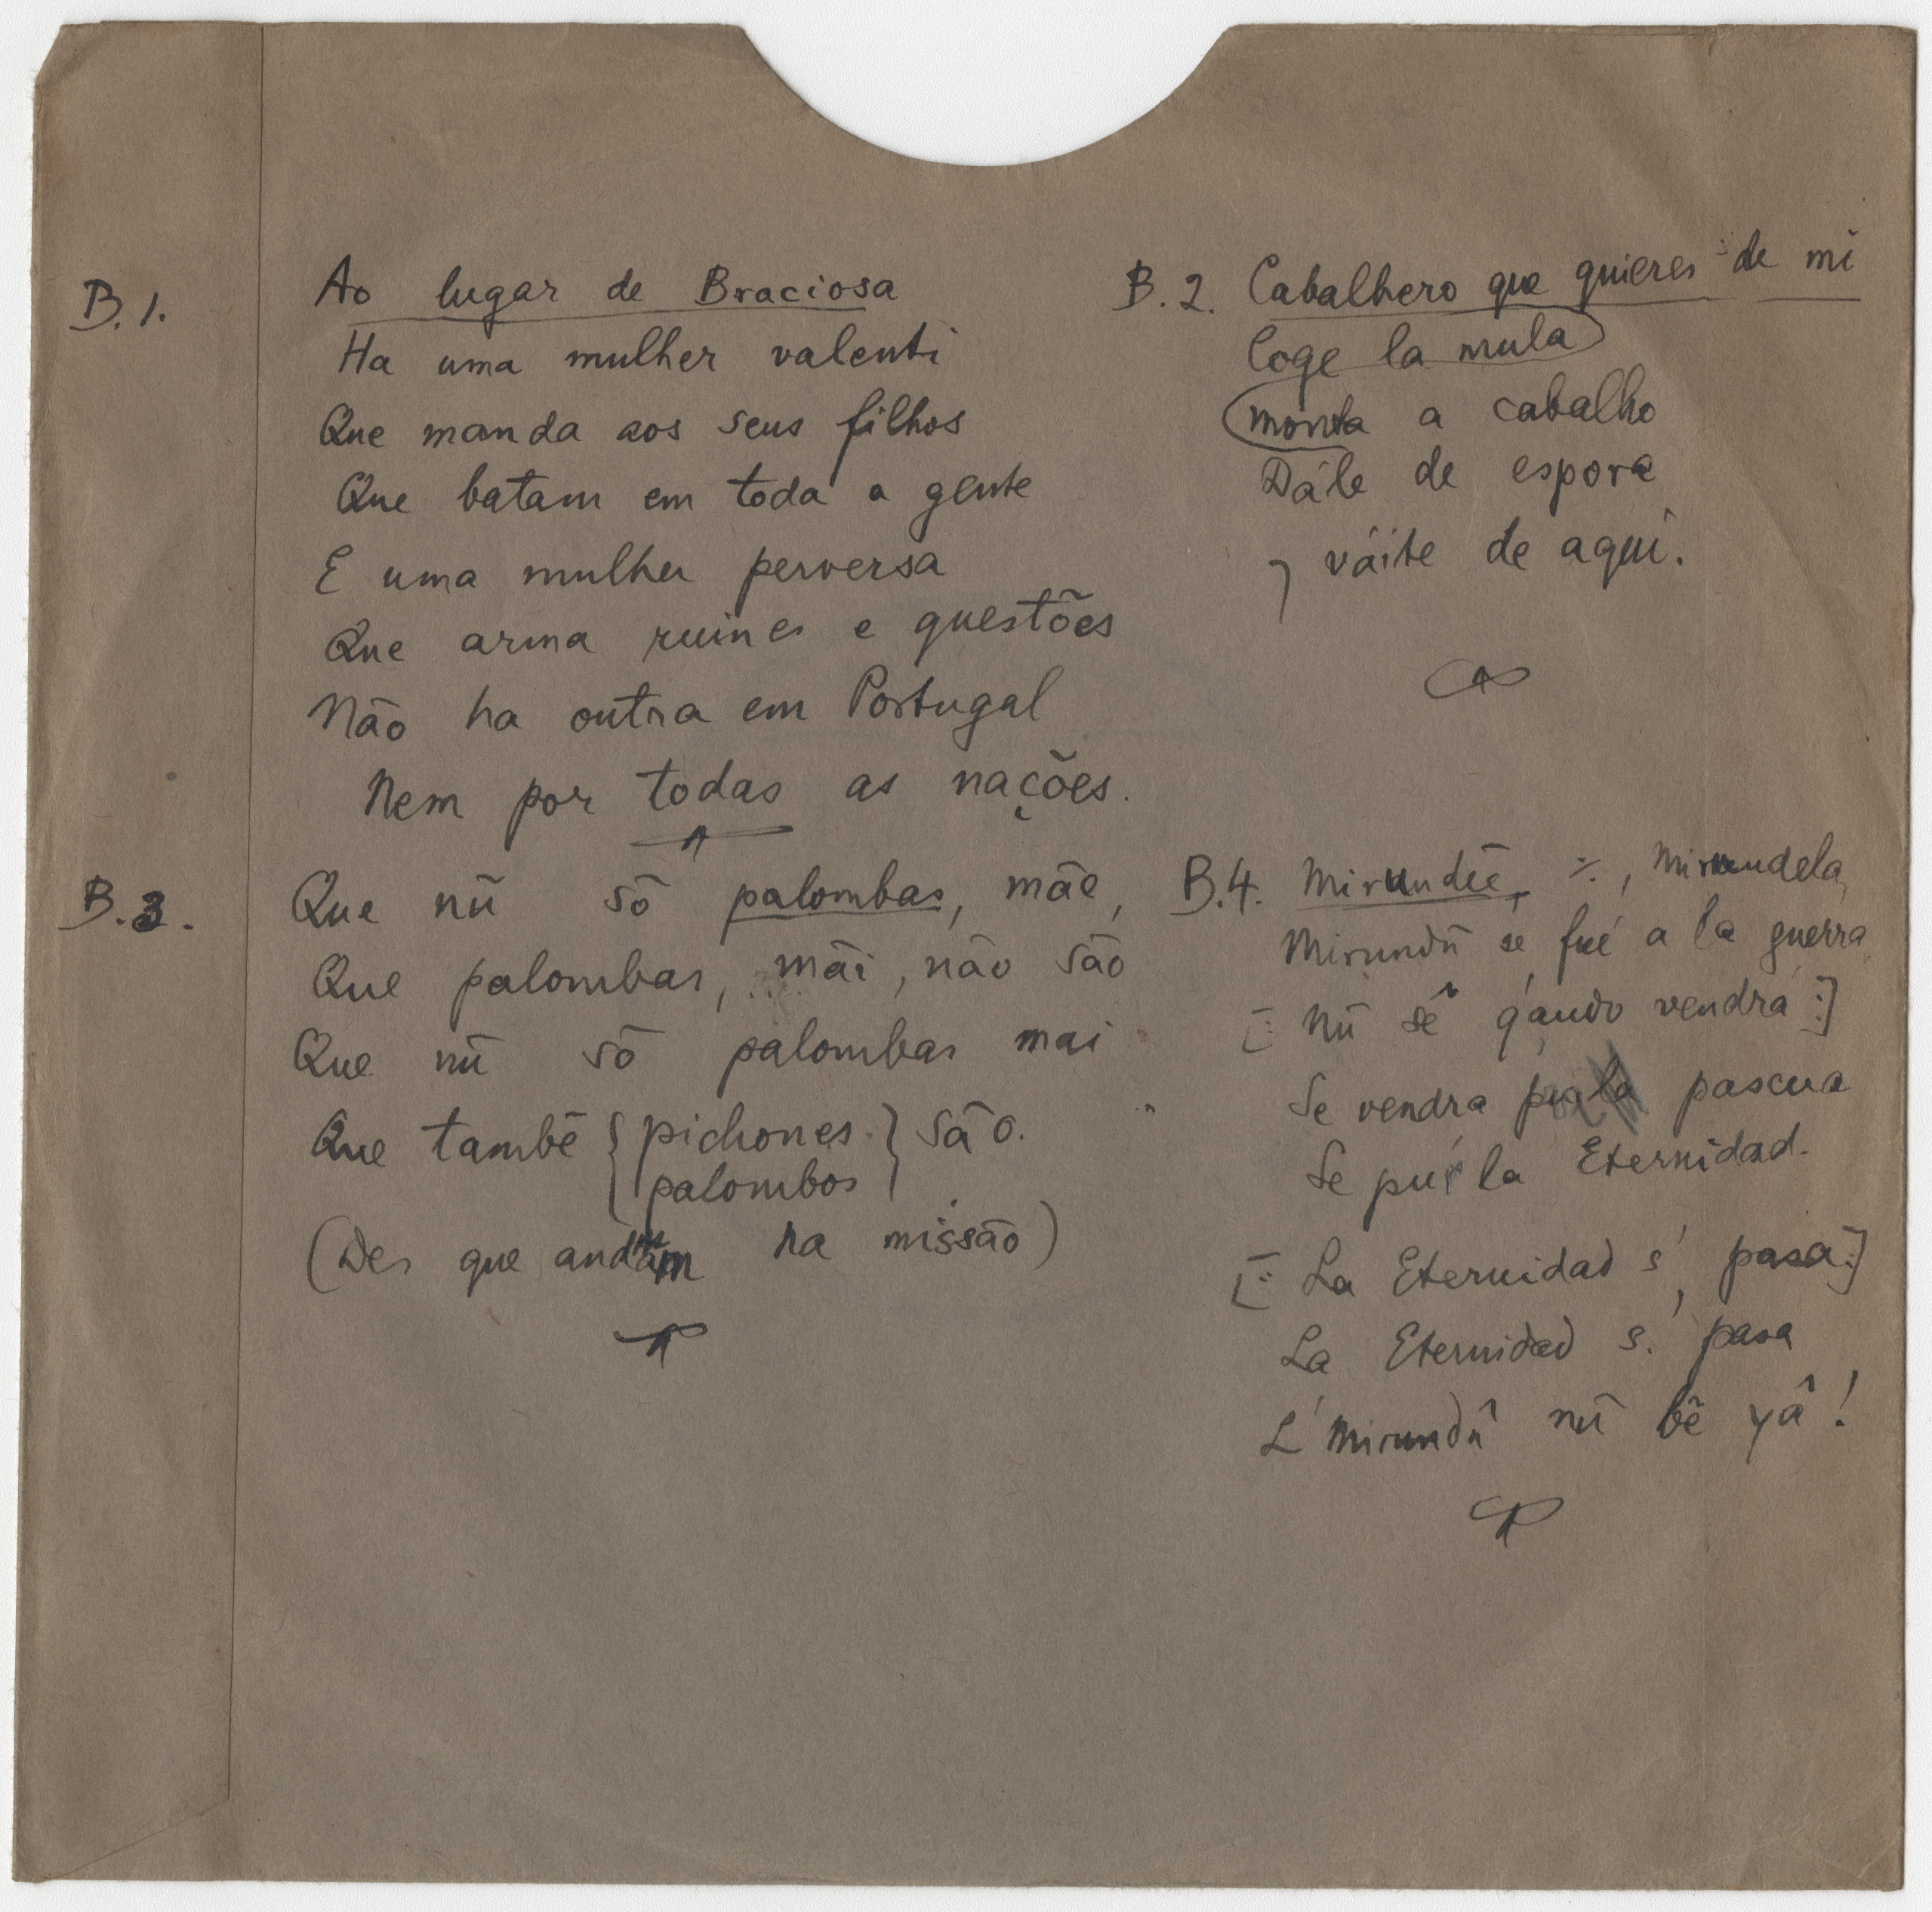 B.1. Ao lugar de Braciosa
Ha uma mulher valenti
Que manda aos seus filhos
Que batam em toda a gente
E uma mulher perversa
Que arma ruines e questões
Não ha outra em Portugal
Nem por todas as nações.
B.2. Cabalhero que quieres de mi
Coge la mula
monta a cabalho
Dále de espora
y váite de aqui.
B.3. Que nũ sõ palombas, mãe,
Que palombas, mãi, não são
Que nũ sõ palombas mai
Que tambẽ { pichones } são.
palombos
(Des que andam na missão)
B.4. Mirundẽ, ·/., Mirundela,
Mirundũ se fué a la guerra
[: Nũ sê q'ando vendrá :]
Se vendra pula pascua
Se pur la Eternidad.
[: La Eternidad s', pasa :]
La Eternidad s' pasa
L' Mirundũ nũ bẽ yâ!